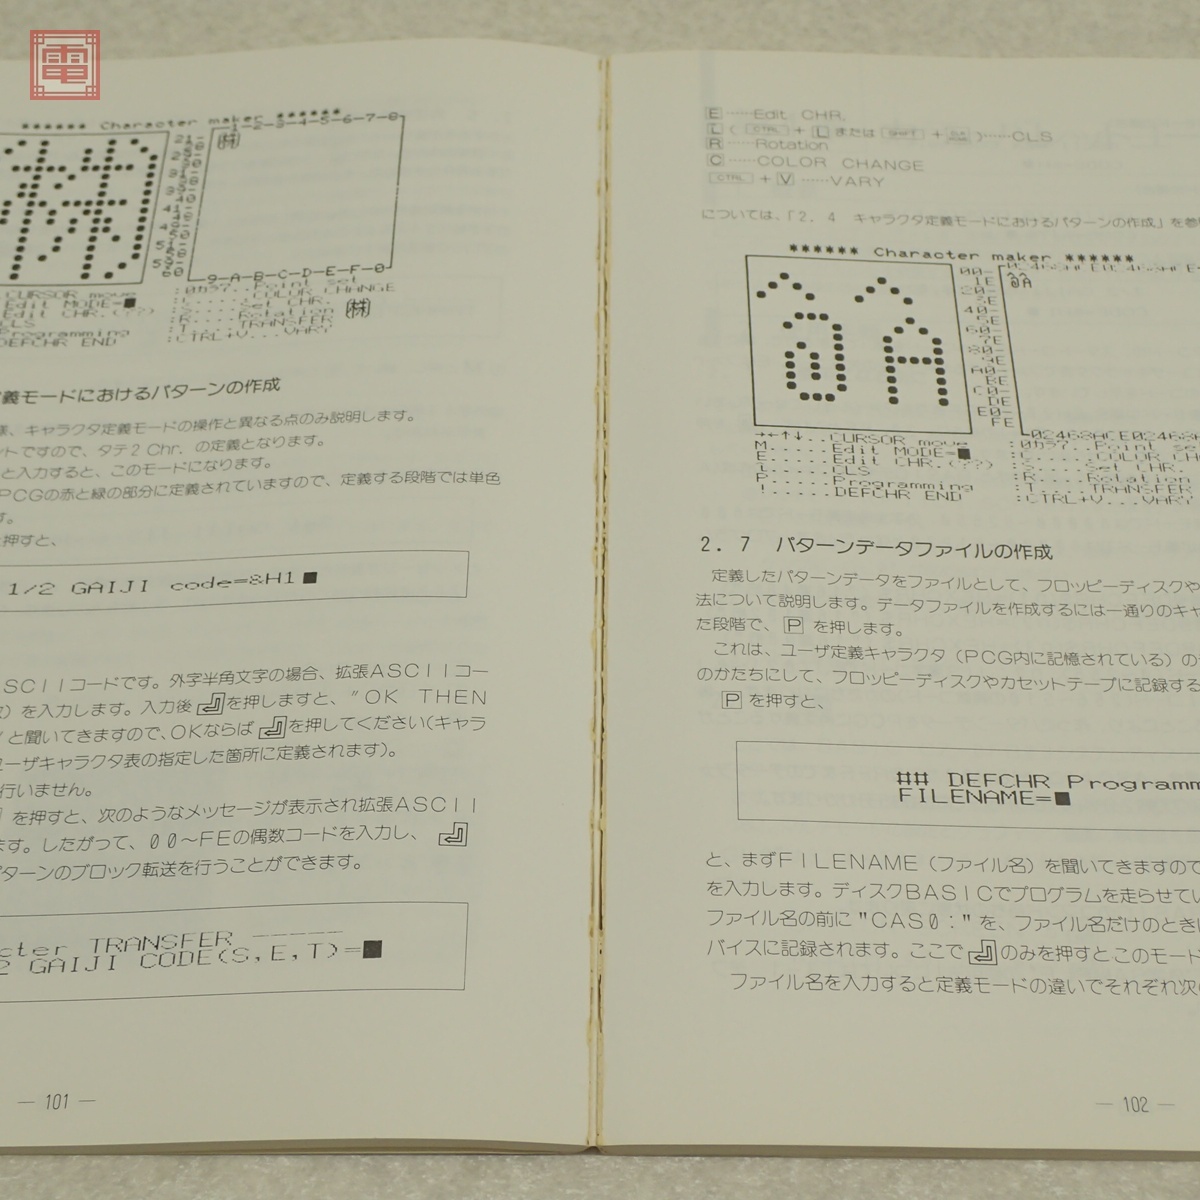 電
****** Character maker ******
1-2-3-4-5-6-7-8
㈱
9-A-B-C-D-E-F-0
CURSOR move
Edit MODE=■
Edit CHR.(??)
CLS
Programming
DEFCHR END
:0カラ7..Point set
COLOR CHANGE
:S....Set CHR.
:R....Rotation
:T....TRANSFER
:CTRL+V...VARY
㈱
義モードにおけるパターンの作成
様、キャラクタ定義モードの操作と異なる点のみ説明します。
ントですので、タテ2 Chr. の定義となります。
と入力すると、このモードになります。
PCGの赤と緑の部分に定義されていますので、定義する段階では単色
す。
押すと、
1/2 GAIJI code=&H1■
SCIIコードです。外字半角文字の場合、拡張ASCIIコー
を入力します。入力後 ↵ を押しますと、"OK THEN
と聞いてきますので、OKならば ↵ を押してください(キャラ
ユーザキャラクタ表の指定した箇所に定義されます)。
行いません。
を押すと、次のようなメッセージが表示され拡張ASCII
ます。したがって、00〜FEの偶数コードを入力し、 ↵
パターンのブロック転送を行うことができます。
cter TRANSFER
2 GAIJI CODE(S,E,T)=■
— 101 —
E ……Edit CHR.
L ( CTRL + L または SHIFT + )……CLS
R ……Rotation
C ……COLOR CHANGE
CTRL + V ……VARY
については、「2．4 キャラクタ定義モードにおけるパターンの作成」を参
****** Character maker ******
→←↑↓..CURSOR move
M.....Edit MODE=■
E.....Edit CHR.(??)
L.....CLS
P.....Programming
!.....DEFCHR END
:0カラ7..Point
:C....COLOR CH
:S....Set CHR.
:R....Rotation
:T....TRANSFER
:CTRL+V...VARY
2．7 パターンデータファイルの作成
定義したパターンデータをファイルとして、フロッピーディスクや
法について説明します。データファイルを作成するには一通りのキャ
た段階で、 P を押します。
これは、ユーザ定義キャラクタ（PCG内に記憶されている）の
のかたちにして、フロッピーディスクやカセットテープに記録する
P を押すと、
## DEFCHR Programm
FILENAME=■
と、まずFILENAME（ファイル名）を聞いてきますので
を入力します。ディスクBASICでプログラムを走らせてい
ファイル名の前に"CAS0："を、ファイル名だけのときに
バイスに記録されます。ここで ↵ のみを押すとこのモード
ファイル名を入力すると定義モードの違いでそれぞれ次の
— 102 —